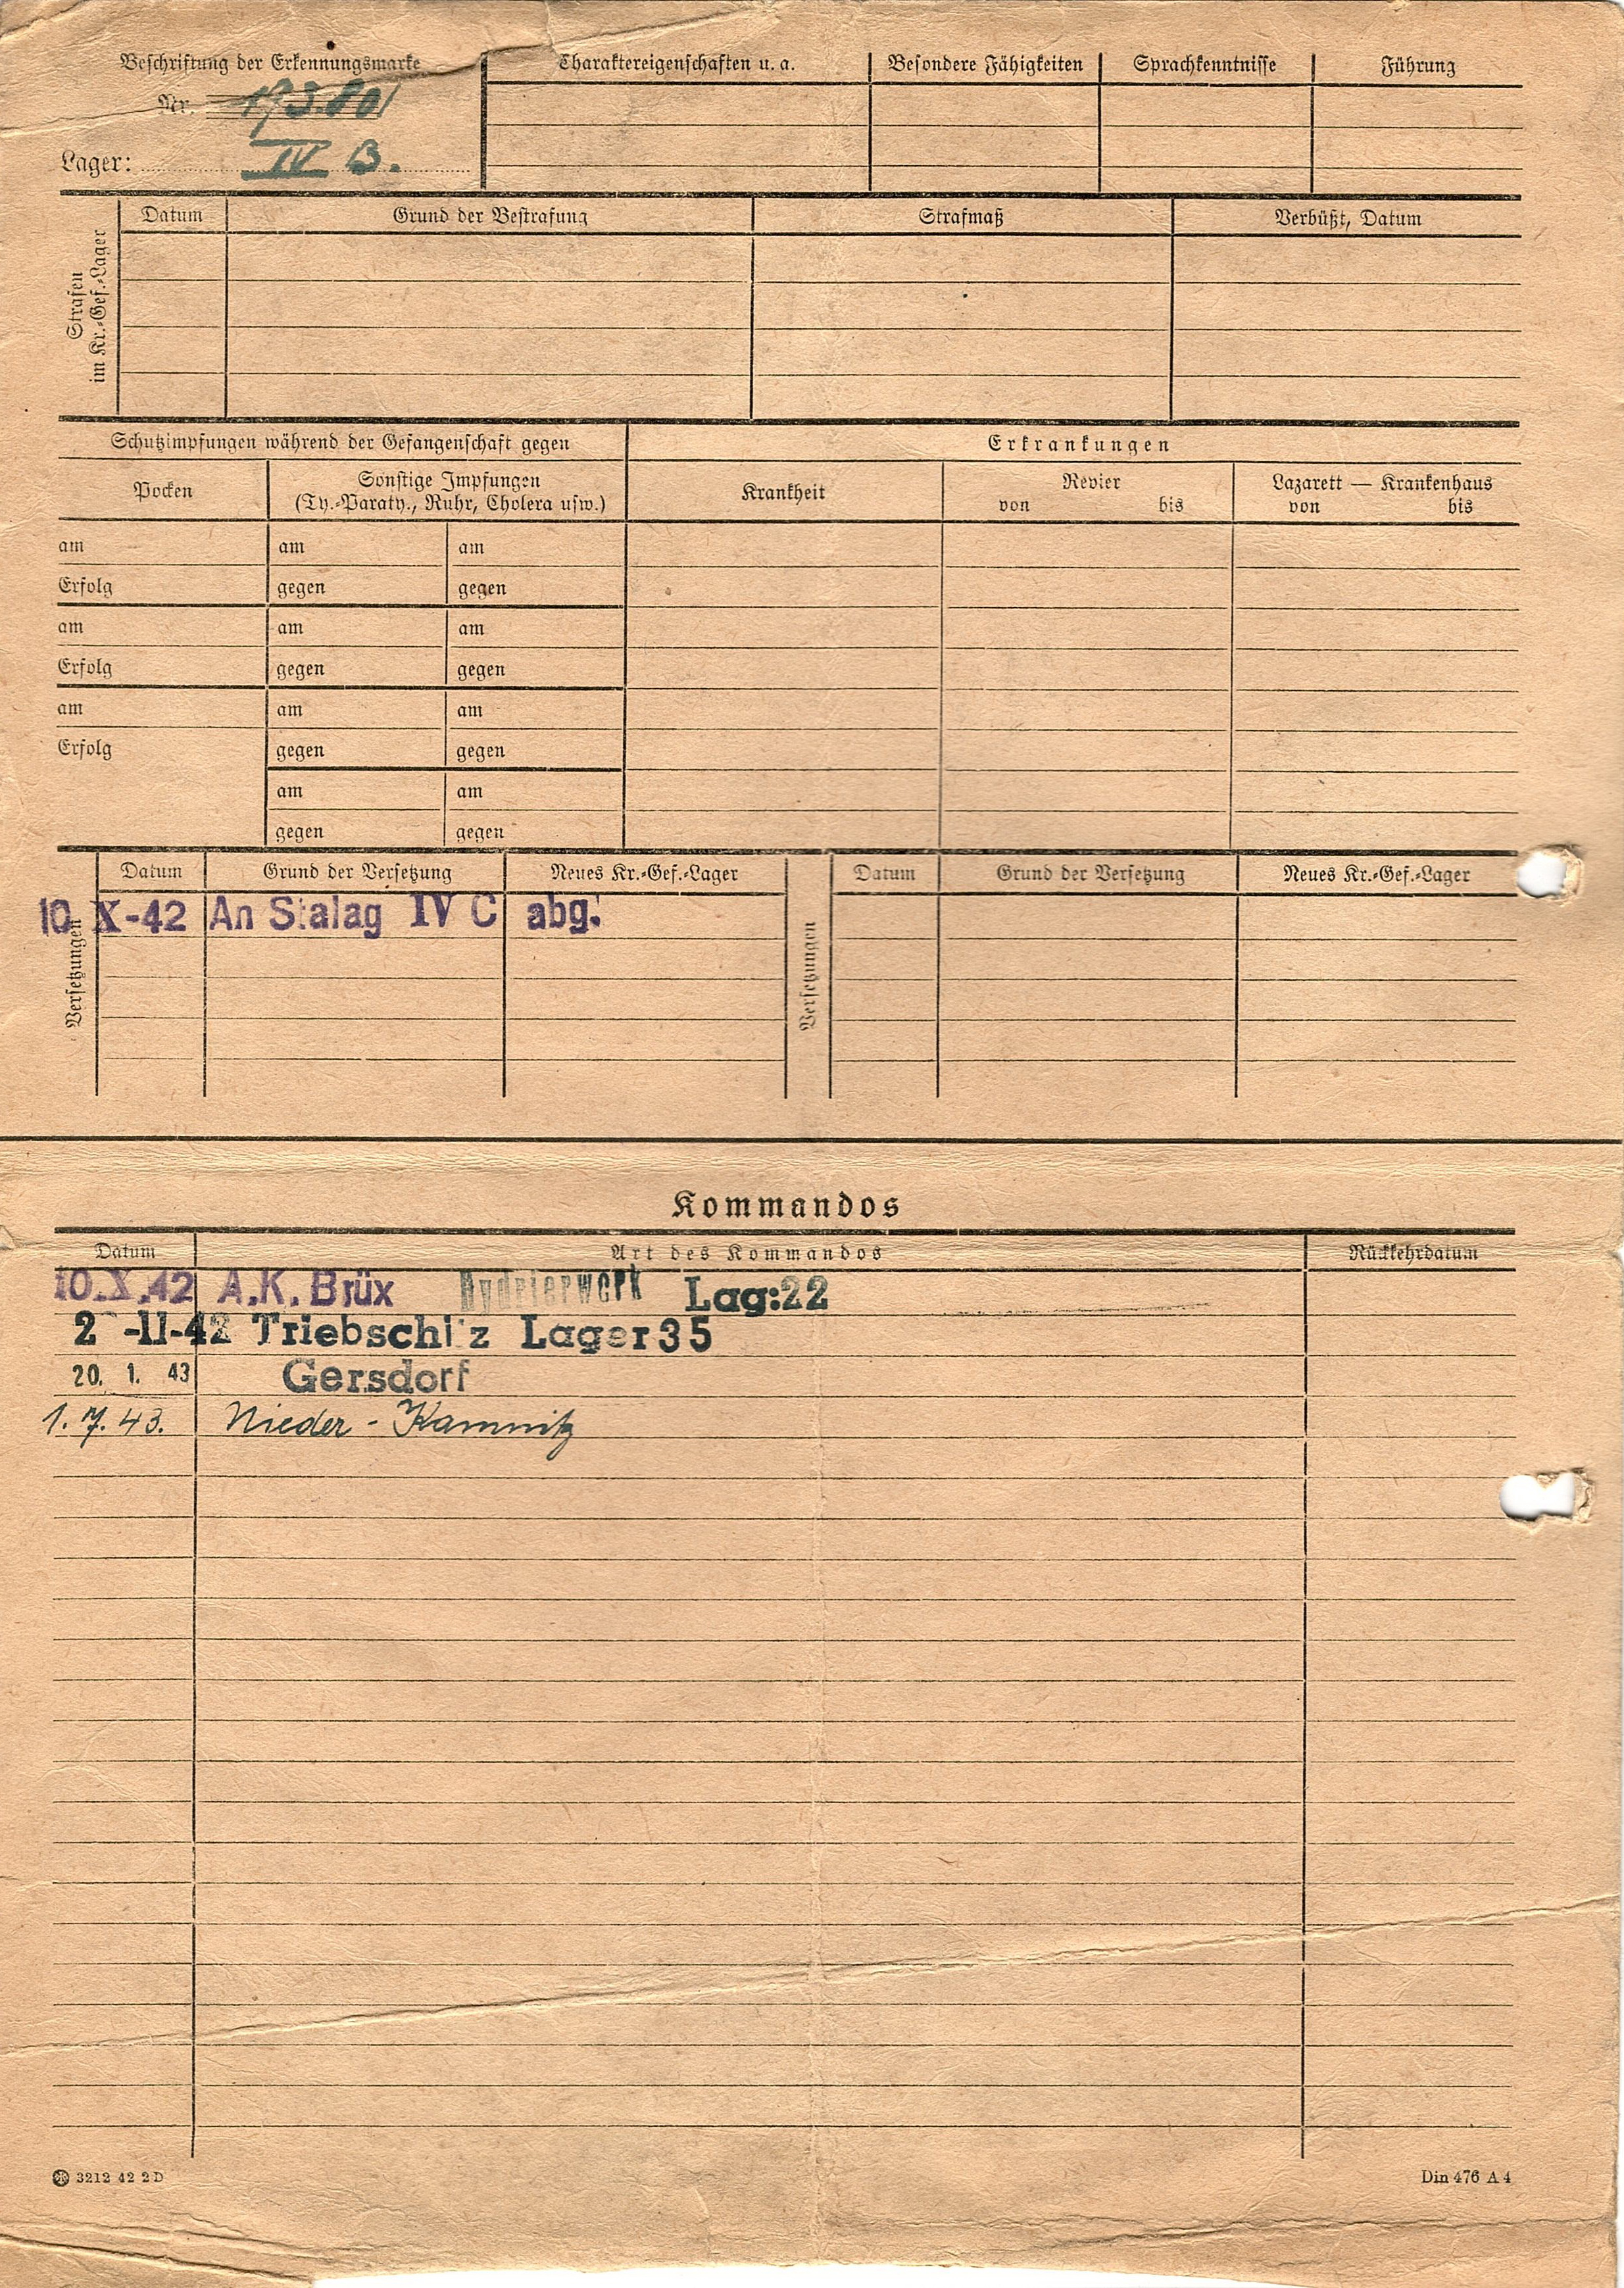 Beschriftung der Erkennungsmarke
Nr. 173.801
Lager: IV B.
Charaktereigenschaften u. a. Besondere Fähigkeiten Sprachkenntnisse Führung
Strafen
im Kr.-Gef.-Lager
Datum Grund der Bestrafung Strafmaß Verbüßt, Datum
Schutzimpfungen während der Gefangenschaft gegen Erkrankungen
Pocken
Sonstige Impfungen
(Ty.-Paraty., Ruhr, Cholera usw.)
Krankheit
Revier
von bis
Lazarett — Krankenhaus
von bis
am am am
Erfolg gegen gegen
am am am
Erfolg gegen gegen
am am am
Erfolg gegen gegen
am am
gegen gegen
Versetzungen
Datum Grund der Versetzung Neues Kr.-Gef.-Lager
10 X-42 An Stalag IV C abg.
Versetzungen
Datum Grund der Versetzung Neues Kr.-Gef.-Lager
Kommandos
Datum Art des Kommandos Rückkehrdatum
10.X.42 A.K. Brüx Hydrierwerk Lag:22
-11-42 Triebschitz Lager 35
20. 1. 43 Gersdorf
1. 7. 43. Nieder-Kamnitz
3212 42 2 D
Din 476 A 4